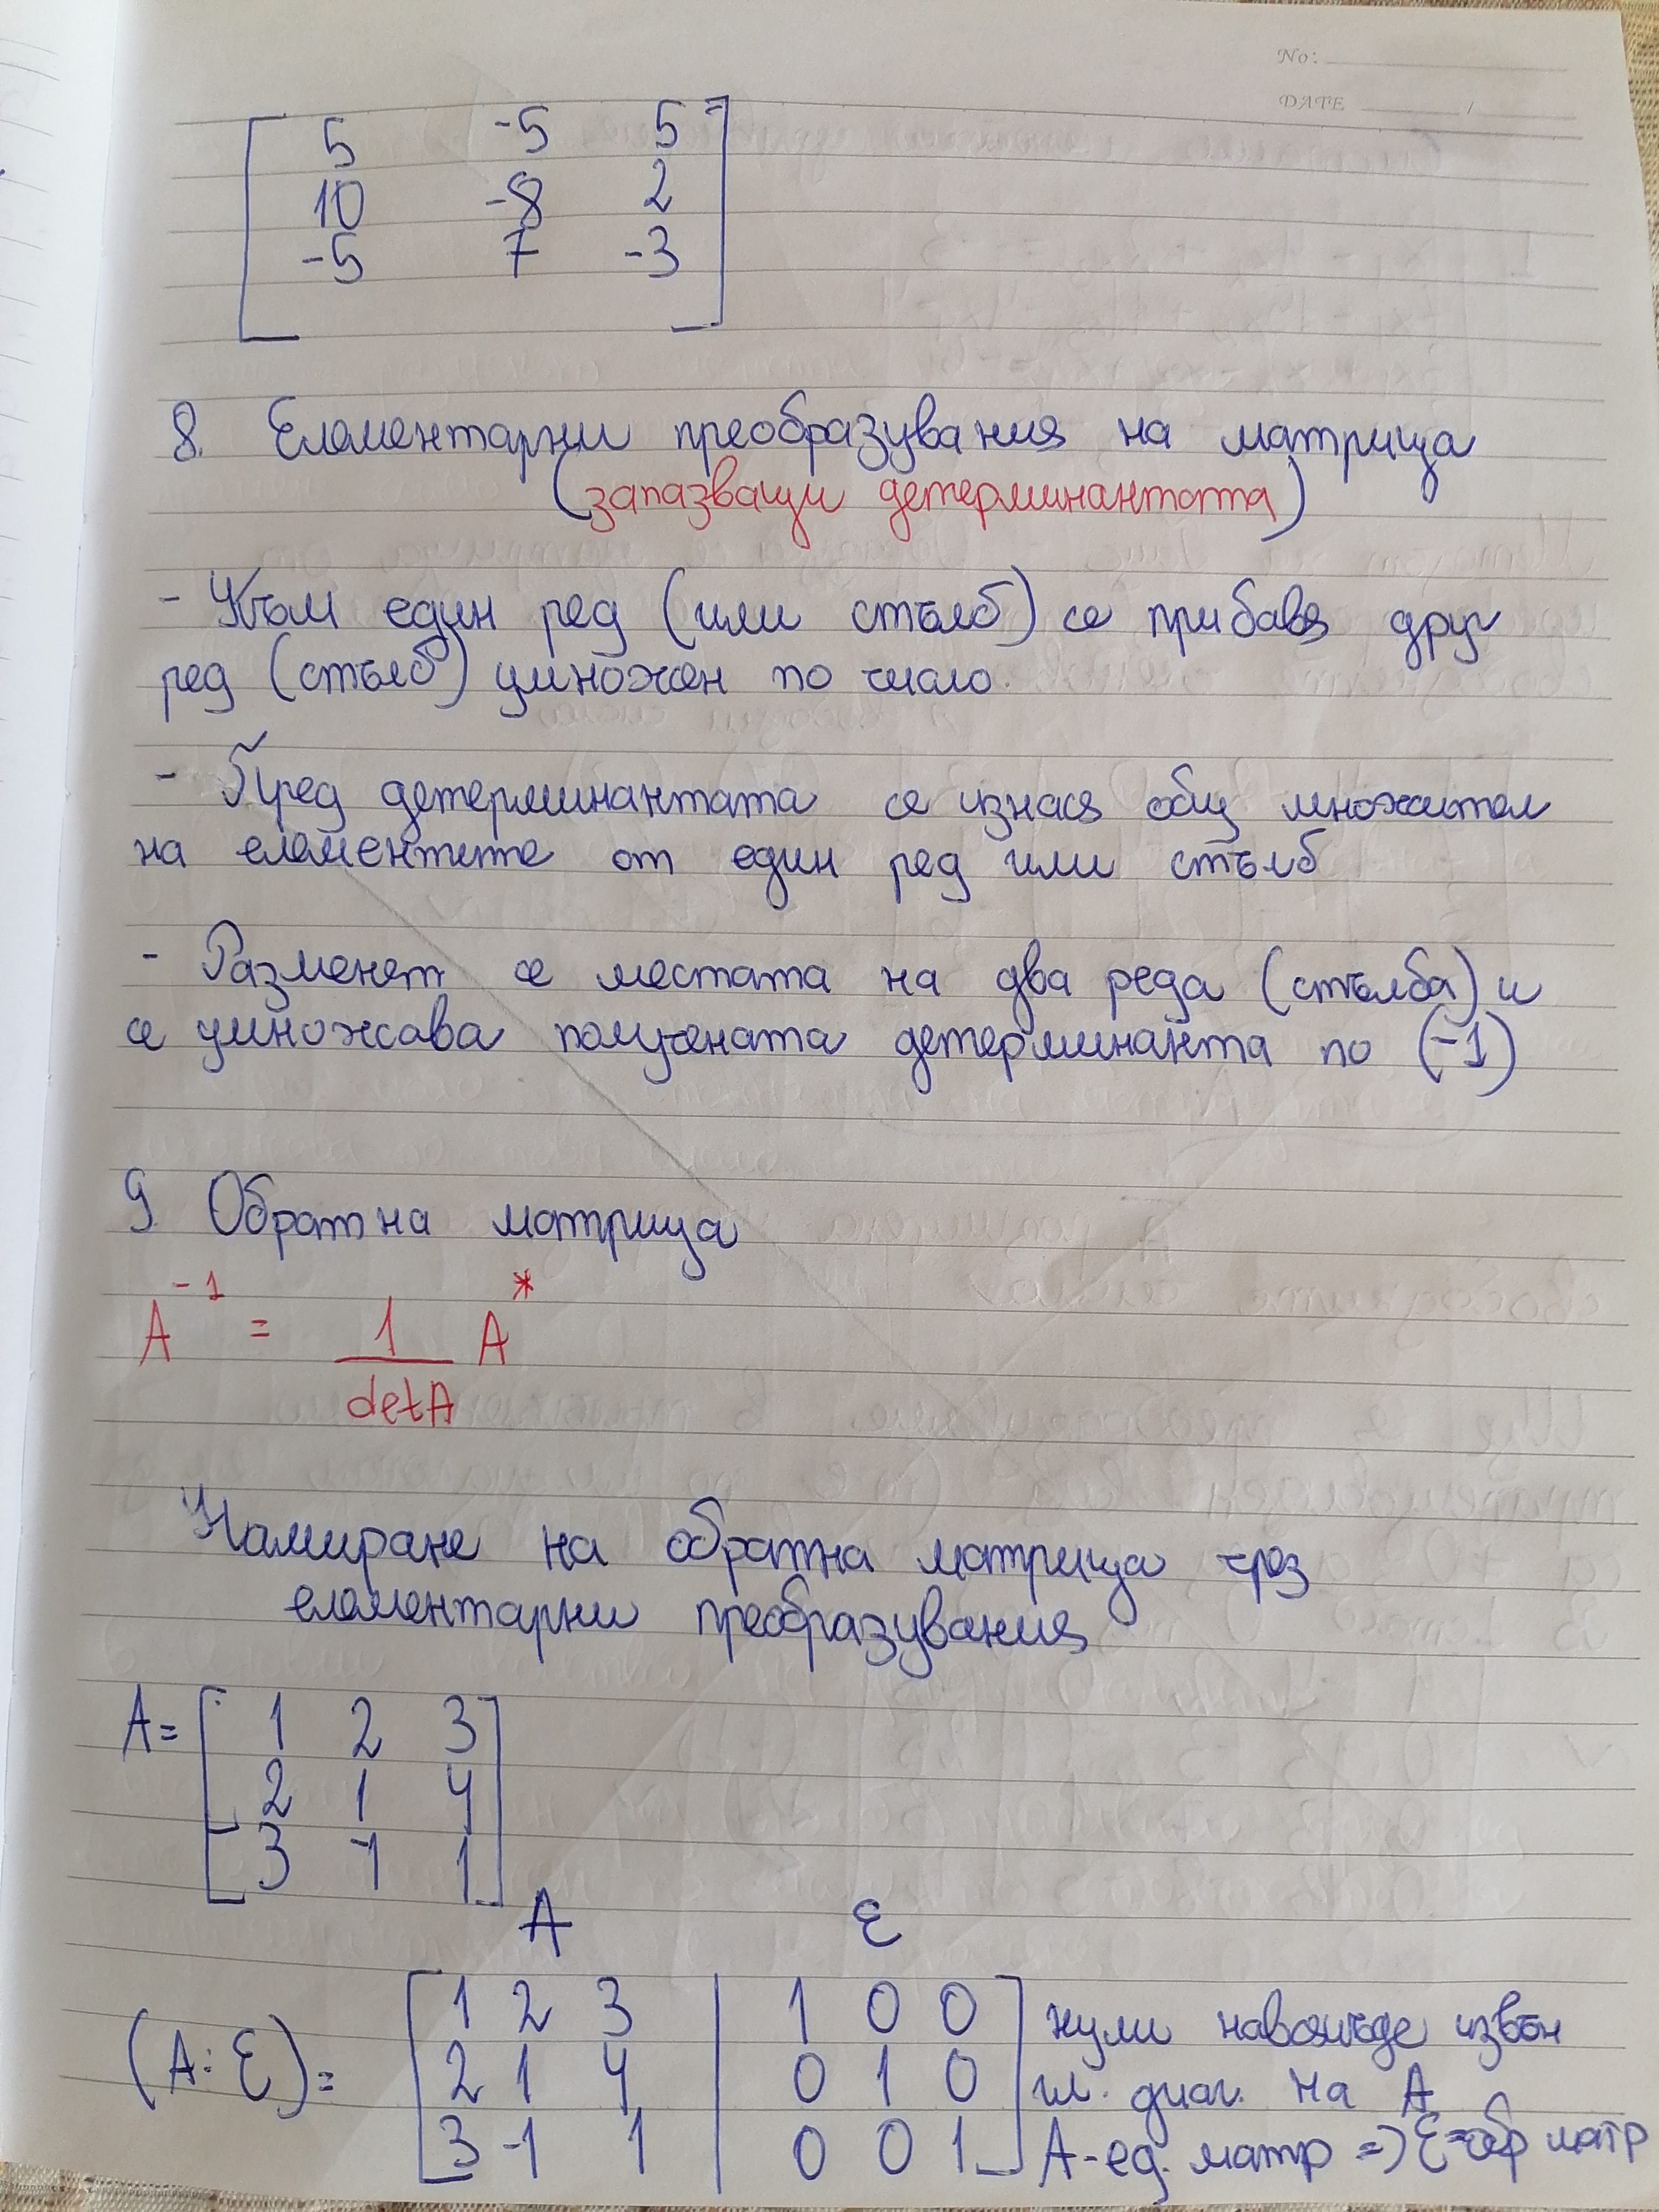 No:
DATE /
5 -5 5
10 -8 2
-5 7 -3
8. Елементарни преобразувания на матрица
(запазващи детерминантата)
- Към един ред (или стълб) се прибавя друг
ред (стълб) умножен по число.
- Пред детерминантата се изнася общ множител
на елементите от един ред или стълб
- Разменят се местата на два реда (стълба) и
се умножава получената детерминанта по (-1)
9. Обратна матрица
A⁻¹ = 1/detA A*
Намиране на обратна матрица чрез
елементарни преобразувания
A= 1 2 3
2 1 4
3 -1 1
A E
1 2 3 | 1 0 0 нули навсякъде извън
(A:E)= 2 1 4 | 0 1 0 гл. диаг. на A
3 -1 1 | 0 0 1 A-ед. матр => E=обр матр